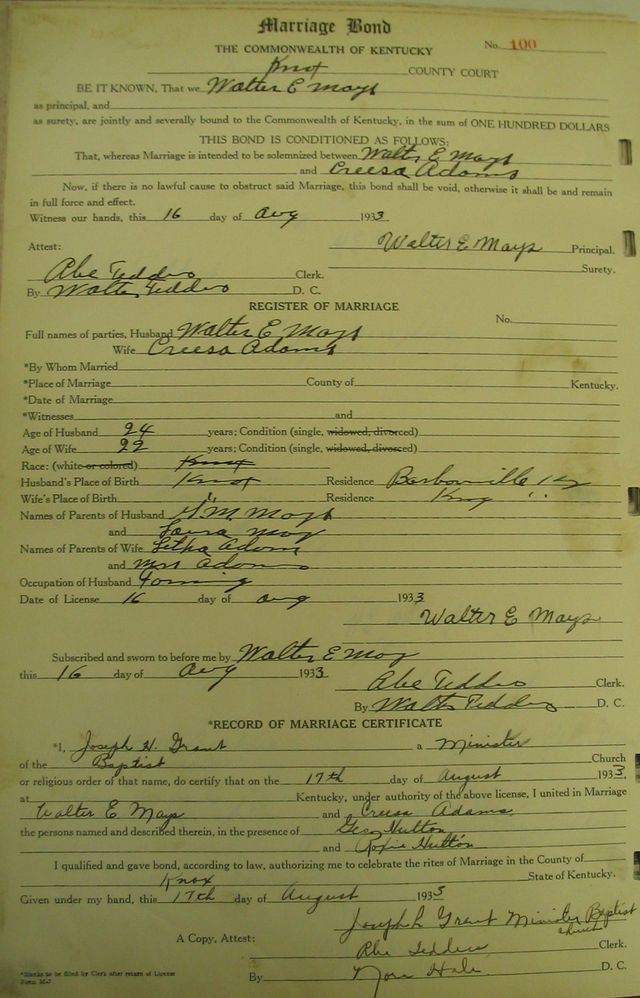 Marriage Bond
THE COMMONWEALTH OF KENTUCKY
No. 100
Knox COUNTY COURT
BE IT KNOWN, That we Walter E Mays
as principal, and
as surety, are jointly and severally bound to the Commonwealth of Kentucky, in the sum of ONE HUNDRED DOLLARS
THIS BOND IS CONDITIONED AS FOLLOWS:
That, whereas Marriage is intended to be solemnized between Walter E Mays
and Creesa Adams
Now, if there is no lawful cause to obstruct said Marriage, this bond shall be void, otherwise it shall be and remain
in full force and effect.
Witness our hands, this 16 day of Aug 1933
Walter E Mays Principal.
Attest:
Surety.
Abe Tedders Clerk.
By Walter Tedders D. C.
REGISTER OF MARRIAGE
No.
Full names of parties, Husband Walter E Mays
Wife Creesa Adams
*By Whom Married
*Place of Marriage County of Kentucky.
*Date of Marriage
*Witnesses and
Age of Husband 24 years; Condition (single, widowed, divorced)
Age of Wife 22 years; Condition (single, widowed, divorced)
Race: (white or colored) Knox
Husband's Place of Birth Knox Residence Barbourville Ky
Wife's Place of Birth " Residence " "
Names of Parents of Husband M. Mays
and Laura May
Names of Parents of Wife Letha Adams
and Mrs Adams
Occupation of Husband Farming
Date of License 16 day of Aug 1933
Walter E Mays
Subscribed and sworn to before me by Walter E May
this 16 day of Aug 1933
Abe Tedders Clerk.
By Walter Tedders D. C.
*RECORD OF MARRIAGE CERTIFICATE
*I, Joseph H. Grant a Minister
of the Baptist Church
or religious order of that name, do certify that on the 17th day of August 1933,
at Kentucky, under authority of the above license, I united in Marriage
Walter E Mays and Creesa Adams.
the persons named and described therein, in the presence of Geo Hutton
and Hutton
I qualified and gave bond, according to law, authorizing me to celebrate the rites of Marriage in the County of
Knox State of Kentucky.
Given under my hand, this 17th day of August 1933
Joseph Grant Minister Baptist
church
A Copy, Attest:
Abe Tedders Clerk.
By Nora Hale D. C.
*Blanks to be filled by Clerk after return of License